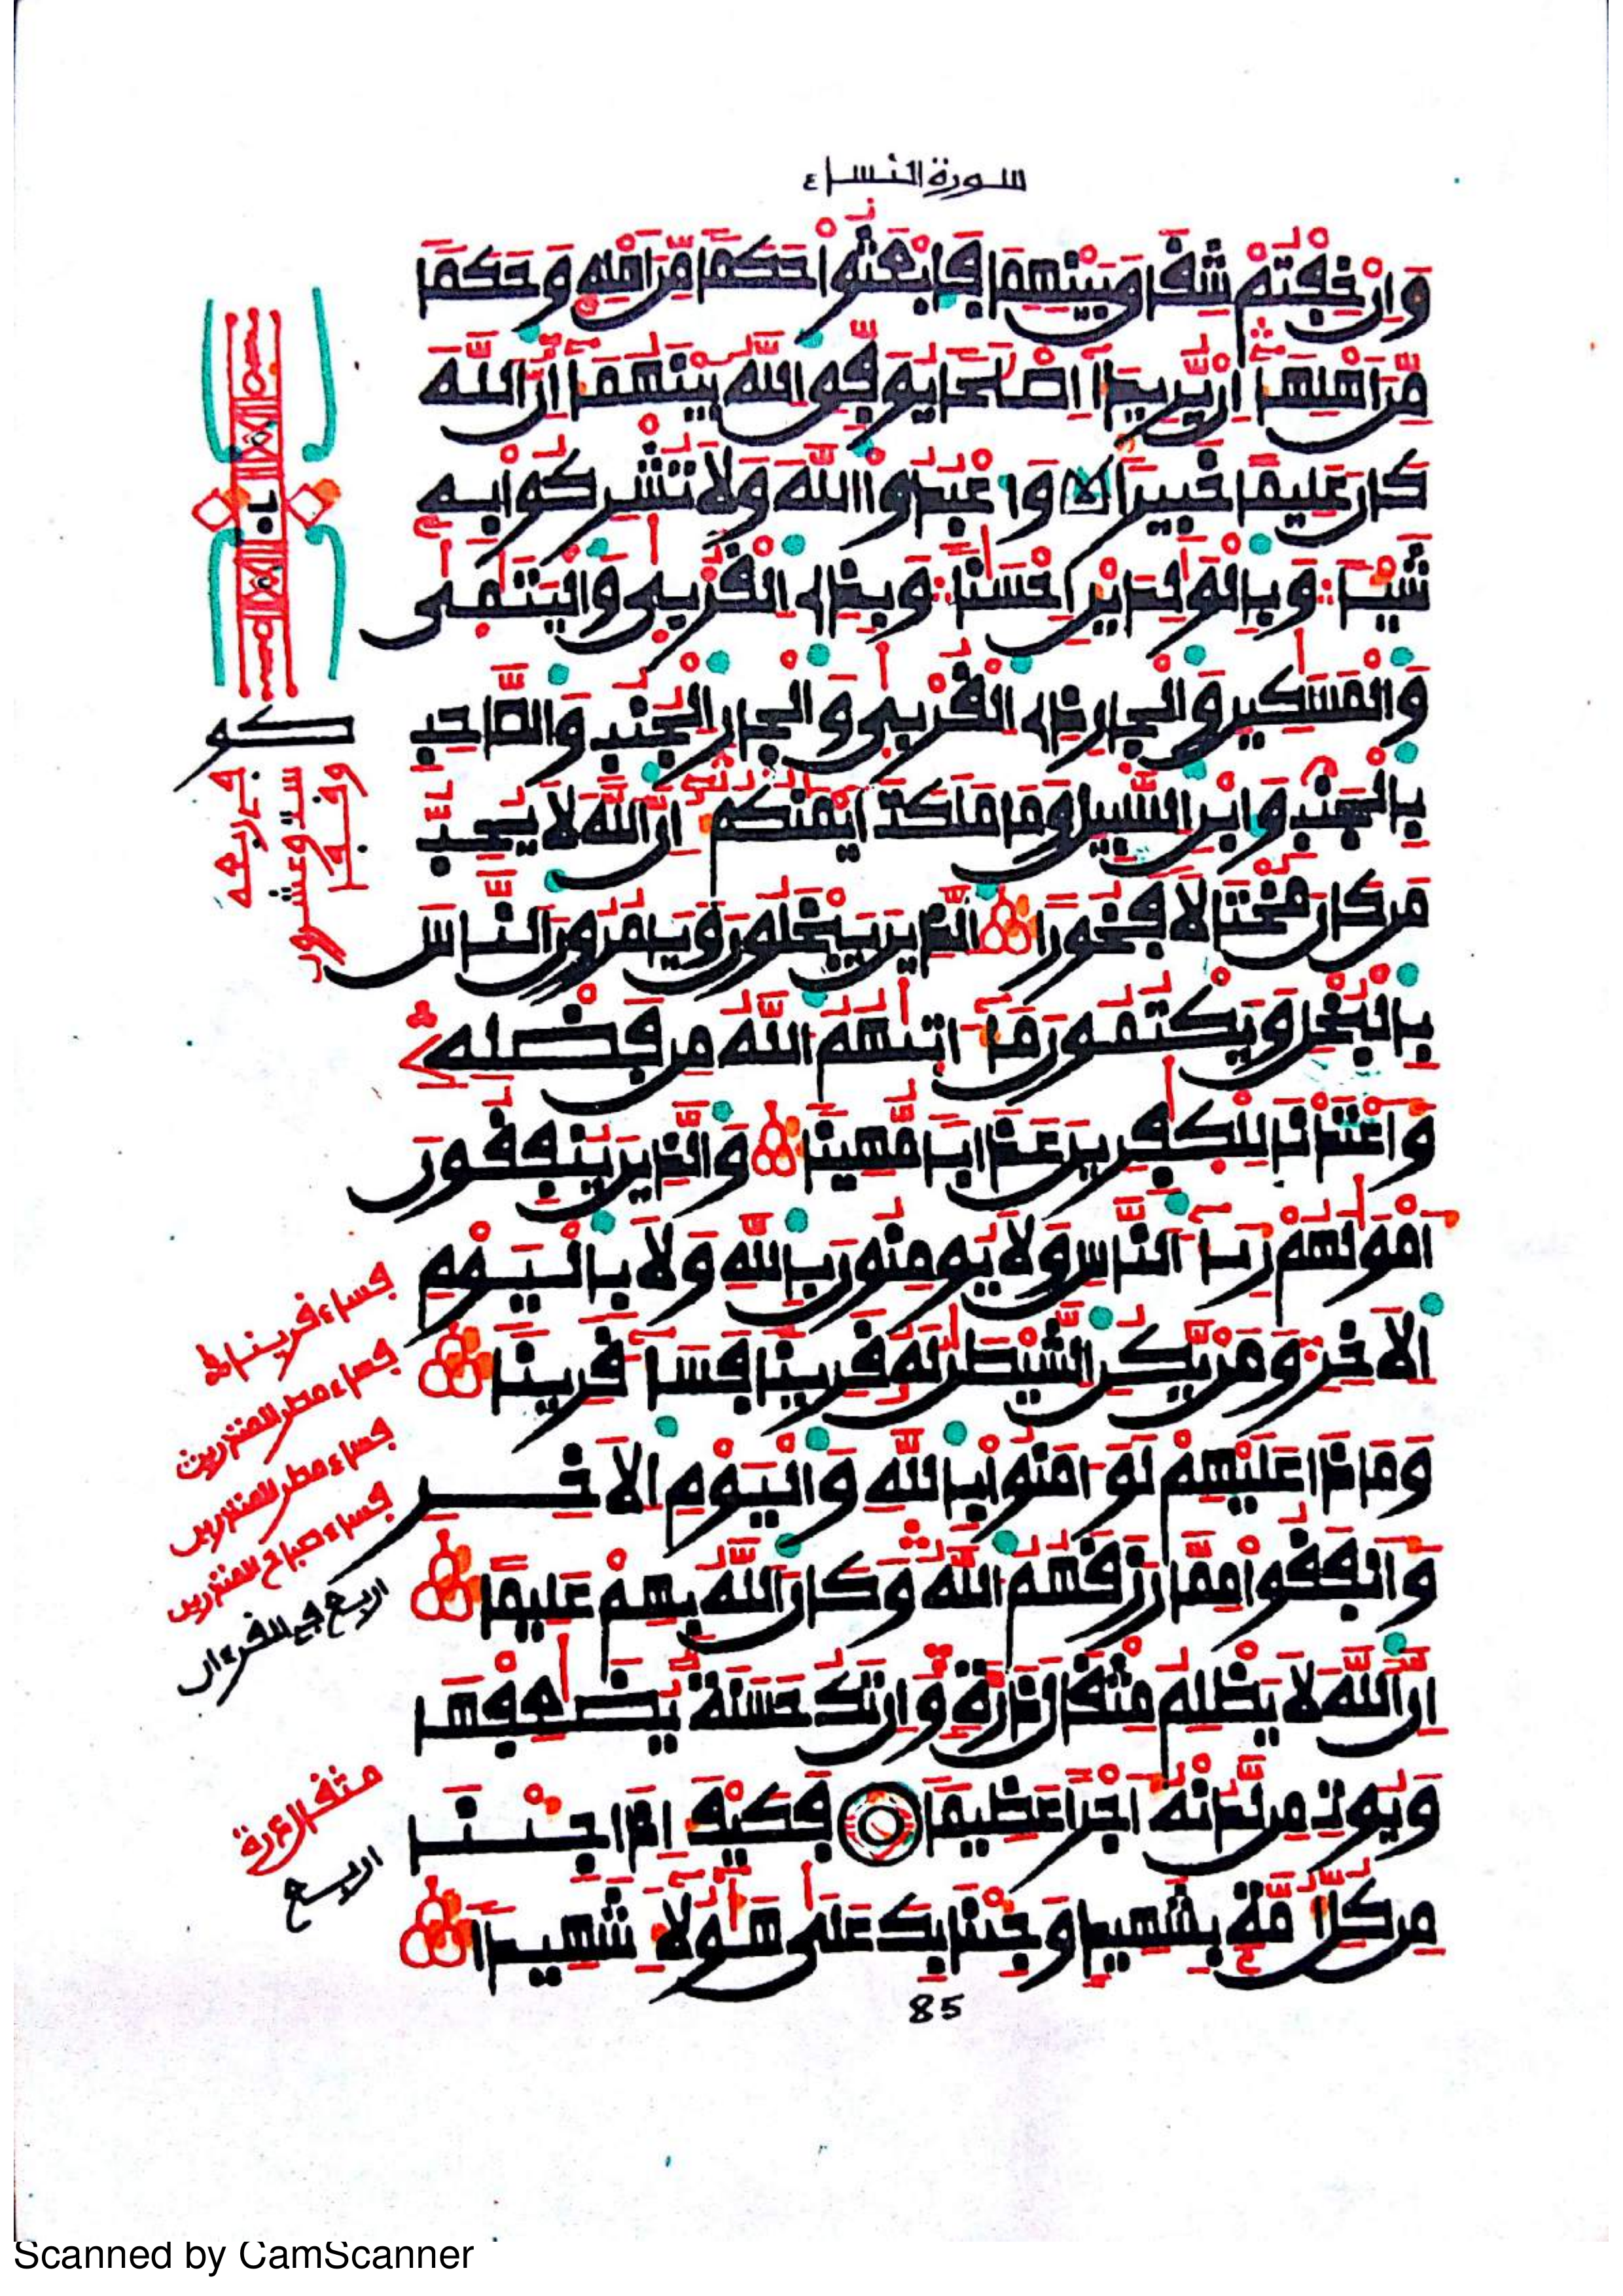 سورة النساء
وَإِنْ خِفْتُمْ شِقَاقَ بَيْنِهِمَا فَابْعَثُواْ حَكَمًا مِّنَ اَهْلِهِ وَحَكَمًا
مِّنَ اَهْلِهَا إِنْ يُّرِيدَا إِصْلَحًا يُوَفِّقِ اللَّهُ بَيْنَهُمَا إِنَّ اللَّهَ
كَانَ عَلِيمًا خَبِيرًا وَاعْبُدُواْ اللَّهَ وَلَا تُشْرِكُواْ بِهِ
شَيْـًٔا وَبِالْوَلِدَيْنِ إِحْسَنًا وَبِذِى الْقُرْبَى وَالْيَتَمَى
وَالْمَسَكِينِ وَالْجِارِ ذِى الْقُرْبَى وَالْجِارِ الْجُنُبِ وَالصَّاحِبِ
بِالْجَنْبِ وَابْنِ السَّبِيلِ وَمَا مَلَكَتَ اَيْمَنُكُمْ إِنَّ اللَّهَ لَا يُحِبُّ
مَن كَانَ مُخْتَالًا فَخُورًا الَّذِينَ يَبْخَلُونَ وَيَامُرُونَ النَّاسَ
بِالْبُخْلِ وَيَكْتُمُونَ مَا ءَاتَىهُمُ اللَّهُ مِن فَضْلِهِ
وَأَعْتَدْنَا لِلْكَفِرِينَ عَذَابًا مُّهِينًا وَالَّذِينَ يُنفِقُونَ
أَمْوَلَهُمْ رِئَاءَ النَّاسِ وَلَا يُومِنُونَ بِاللَّهِ وَلَا بِالْيَوْمِ
الَاخِرِ وَمَنْ يَّكُنِ الشَّيْطَنُ لَهُ قَرِينًا فَسَاءَ قَرِينًا
وَمَاذَا عَلَيْهِمْ لَوَ ـامَنُواْ بِاللَّهِ وَالْيَوْمِ الَاخِرِ
وَأَنفَقُواْ مِمَّا رَزَقَهُمُ اللَّهُ وَكَانَ اللَّهُ بِهِمْ عَلِيمًا
إِنَّ اللَّهَ لَا يَظْلِمُ مِثْقَالَ ذَرَّةٍ وَإِن تَكُ حَسَنَةٌ يُضَعِفْهَا
وَيُوتِ مِن لَّدُنْهُ أَجْرًا عَظِيمًا فَكَيْفَ إِذَا جِئْنَا
مِن كُلِّ أُمَّةٍ بِشَهِيدٍ وَجِئْنَا بِكَ عَلَى هَؤُلَاءِ شَهِيدًا
فساء قرينا
فساء مطر المنذرين
فساء مطر المنذرين
فساء صباح المنذرين
اربع في القرءان
مثقال ذرة
اربع
85
Scanned by CamScanner